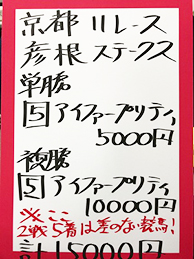 京都11レース
彦根ステークス
単勝
5 アイファープリティ
5000円
複勝
5 アイファープリティ
10000円
※ここ
2戦5着は差のない競馬!
計15000円